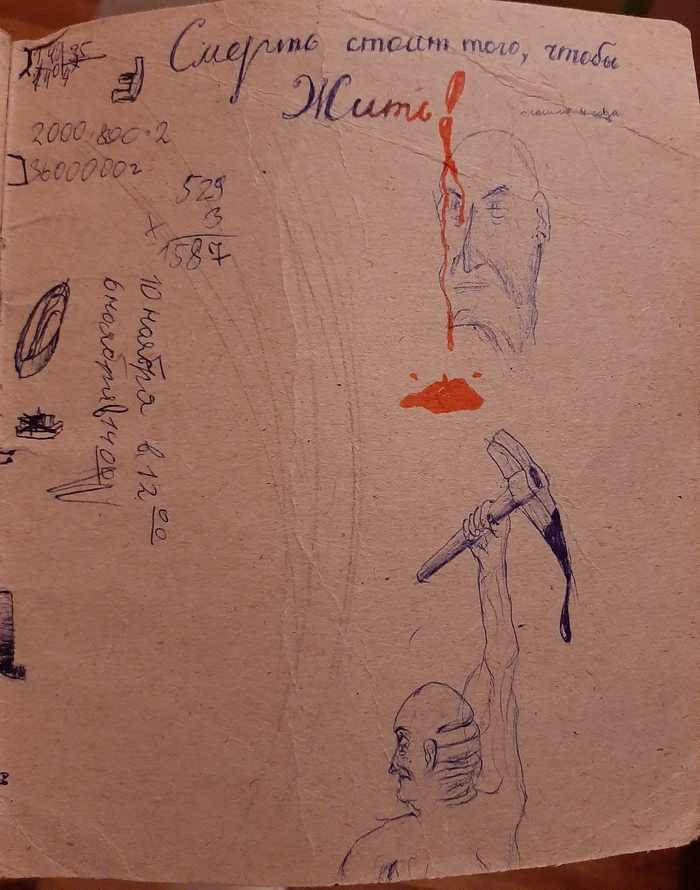 Смерть стоит того, чтобы
Жить!
2000·800·2
3600000г
529
3
×
1587
10 ноября в 12 00
6 ноября в 14 00